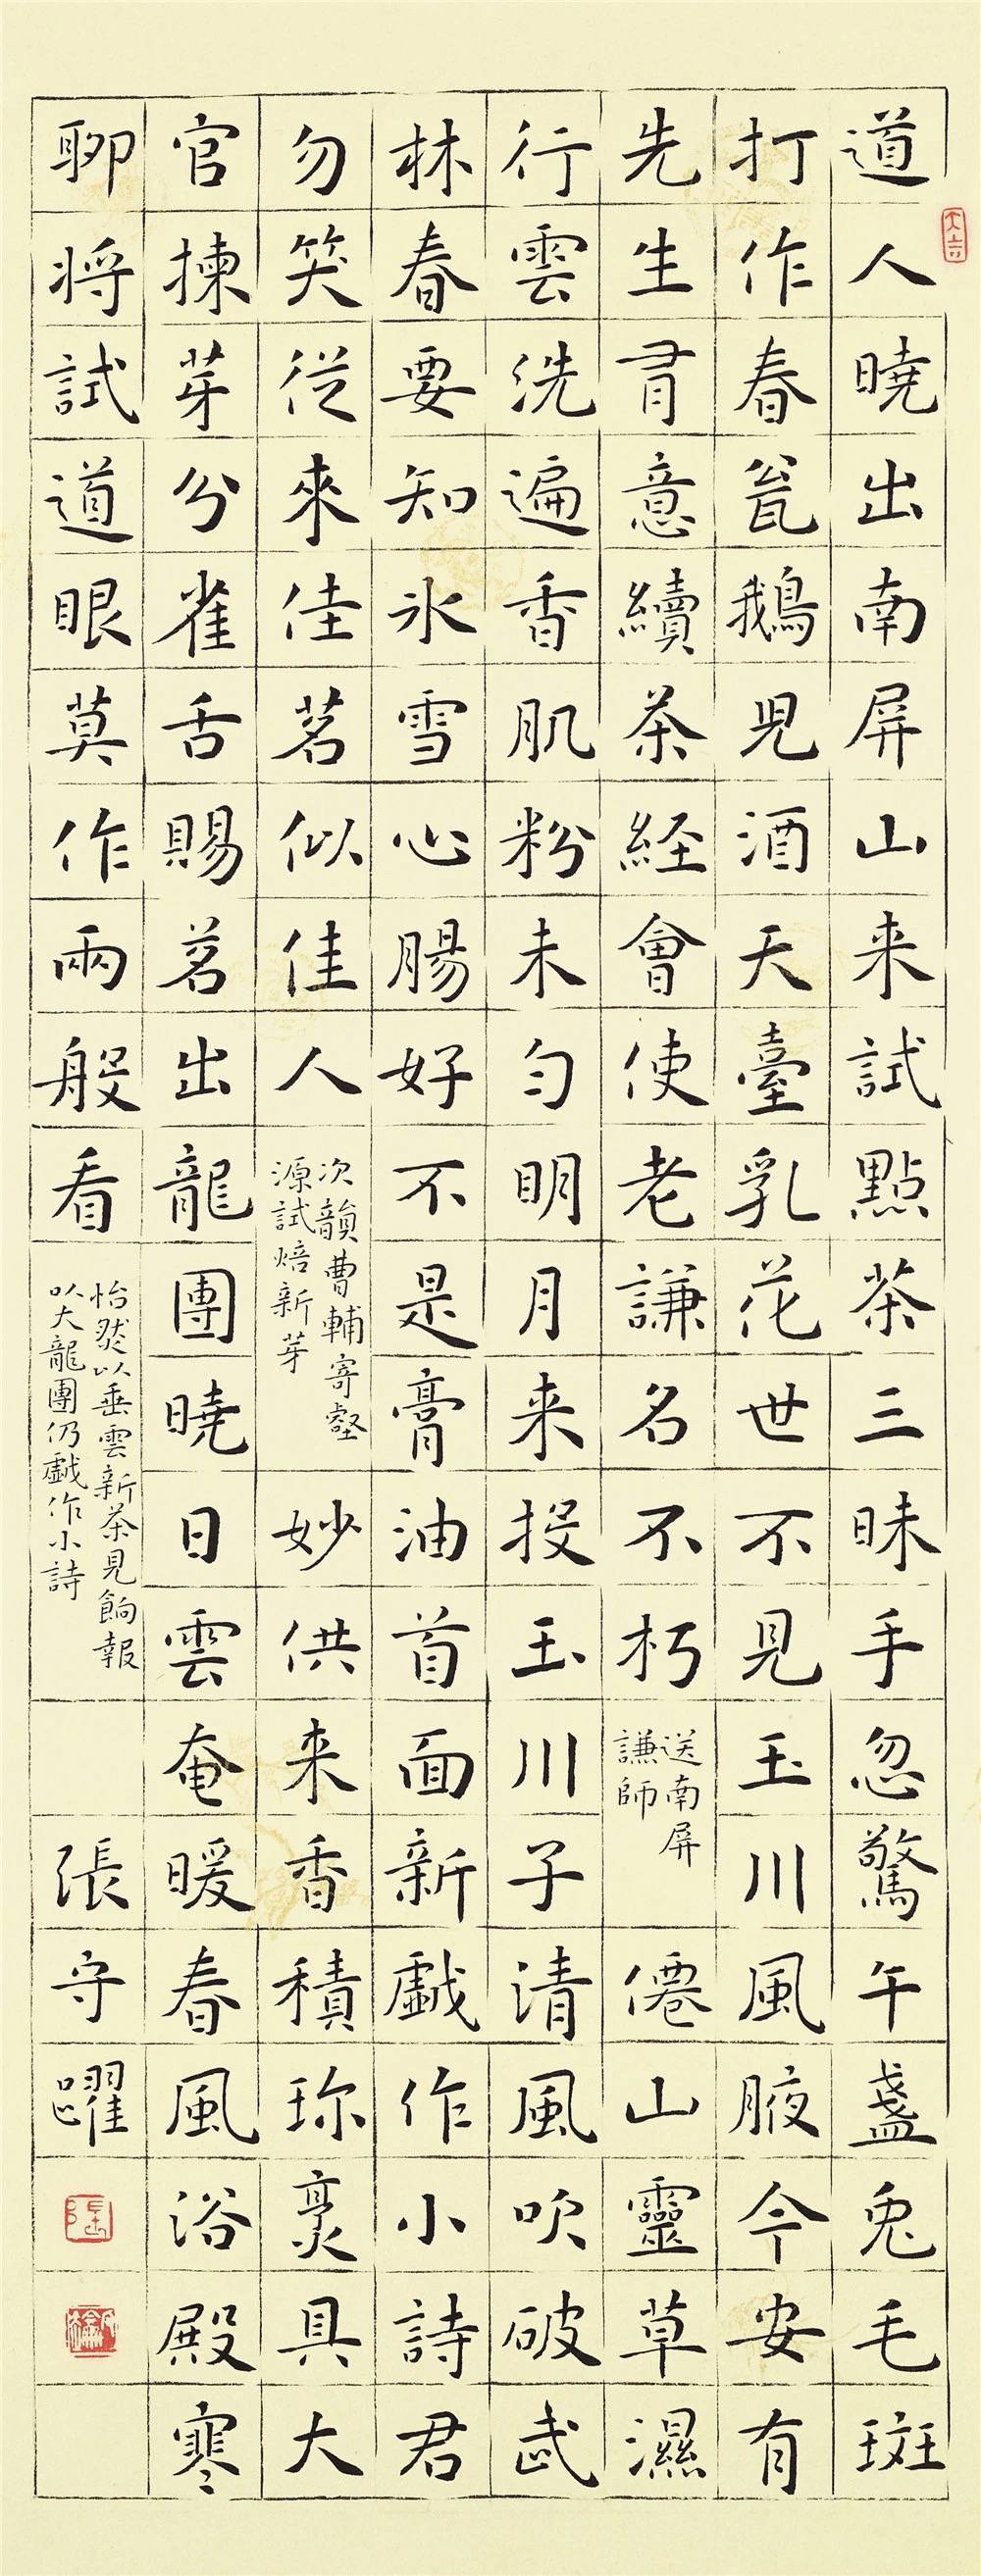 道人曉出南屏山来試點茶三昧手忽驚午盞兔毛斑
打作春瓮鵝兒酒天臺乳花世不見玉川風腋今安有
先生有意續茶經會使老謙名不朽
送南屏
謙師
僊山靈草濕
行雲洗遍香肌粉未勻明月来投玉川子清風吹破武
林春要知氷雪心腸好不是膏油首面新戲作小詩君
勿笑從來佳茗似佳人
次韻曹輔寄壑
源試焙新芽
妙供来香積珎烹具大
官揀芽分雀舌賜茗出龍團曉日雲奄暖春風浴殿寒
聊将試道眼莫作兩般看
怡然以垂雲新茶見餉報
以大龍團仍戲作小詩
張守躍
大吉